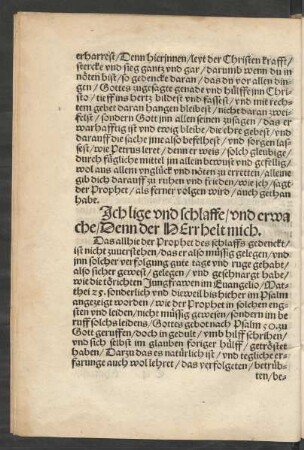 erharrest/ Denn hierjnnen/ leyt der Christen krafft/
stercke vnd sieg gantz vnd gar/ darumb wenn du in
nöten bist/ so gedencke daran/ das du vor allen din-
gen/ Gottes zugesagte genade vnd hülffe jnn Chri-
sto/ tieff ins hertz bildest vnd fassest/ vnd mit rech-
tem gebet daran hangen bleibest/ nicht daran zwei-
felst/ sondern Gott jnn allen seinen zusagen/ das er
warhafftig ist vnd ewig bleibe/ die ehre gebest/ vnd
darauff die sache jme also befelhest/ vnd sorgen las-
sest/ wie Petrus leret/ denn er weis/ solch gleubige/
durch fügliche mittel jm allein bewust vnd gefellig/
wol aus allem vnglück vnd nöten zu erretten/ alleine
gib dich darauff zu ruhen vnd frieden/ wie ich/ sagt
der Prophet/ als ferner volgen wird/ auch gethan
habe.
Ich lige vnd schlaffe/ vnd erwa
che/ Denn der HErr helt mich.
Das allhie der Prophet des schlaffs gedenckt/
ist nicht zuuerstehen/ das er also müssig gelegen/ vnd
jnn solcher verfolgung gute tage vnd ruge gehabt/
also sicher gewest/ gelegen/ vnd geschnargt habe/
wie die törichten Jungfrawen im Euangelio/ Mat-
thei 25. sonderlich die weil bis hieher im Psalm
angezeigt worden/ wie der Prophet in solchen eng-
sten vnd leiden/ nicht müssig gewesen/ sondern im be-
ruff solchs leidens/ Gottes gebot nach Psalm 50. zu
Gott geruffen/ doch in gedult/ vmb hilff schrihen/
vnd sich selbst im glauben foriger hülff/ getröstet
haben/ Darzu das es natürlich ist/ vnd tegliche er-
farunge auch wol lehret/ das verfolgeten/ betrüb-
ten/ be-